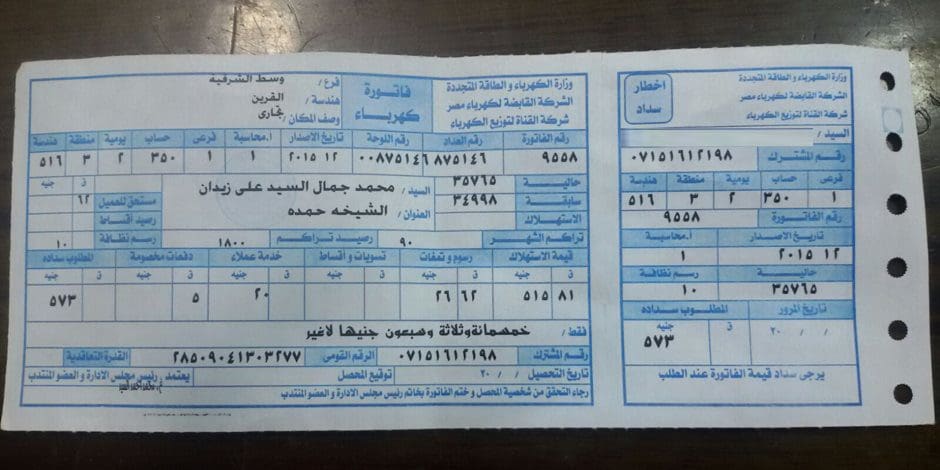 وزارة الكهرباء و الطاقة المتجددة
الشركة القابضة لكهرباء مصر
شركة القناة لتوزيع الكهرباء
فاتورة
كهرباء
فرع / وسط الشرقية
هندسة / القرين
وصف المكان / تجارى
رقم الفاتورة رقم العداد رقم اللوحة تاريخ الاصدار ا.محاسبة فرعى حساب يومية منطقة هندسة
٩٥٥٨ ٨٧٥١٤٦ ٠٠٨٧٥١٤٦ ٢٠١٥ ١٢ ١ ١ ٣٥٠ ٢ ٣ ٥١٦
حالية ٣٥٧٦٥
سابقة ٣٤٩٩٨
الاستهلاك
السيد / محمد جمال السيد على زيدان
العنوان / الشيخه حمده
ق جنيه
مستحق للعميل ٦٢
رصيد أقساط
تراكم الشهر ٩٠ رصيد تراكم ١٨٠٠ رسم نظافة ١٠
قيمة الاستهلاك رسوم و تمغات تسويات و أقساط خدمة عملاء دفعات مخصومة المطلوب سداده
ق جنيه ق جنيه ق جنيه ق جنيه ق جنيه ق جنيه
٨١ ٥١٥ ٦٢ ٢٦ ٢٠ ٥ ٥٧٣
فقط / خمسمائةوثلاثة وسبعون جنيها لاغير
رقم المشترك ٠٧١٥١٦١٢١٩٨ الرقم القومى ٢٨٥٠٩٠٤١٣٠٣٢٧٧ القدرة التعاقدية
تاريخ التحصيل / / ٢٠ توقيع المحصل يعتمد ,رئيس مجلس الادارة و العضو المنتدب
رجاء التحقق من شخصية المحصل و ختم الفاتورة بخاتم رئيس مجلس الادارة و العضو المنتدب
وزارة الكهرباء و الطاقة المتجددة
الشركة القابضة لكهرباء مصر
شركة القناة لتوزيع الكهرباء
اخطار
سداد
السيد /
رقم المشترك ٠٧١٥١٦١٢١٩٨
فرعى حساب يومية منطقة هندسة
١ ٣٥٠ ٢ ٣ ٥١٦
رقم الفاتورة ٩٥٥٨
تاريخ الاصدار ا.محاسبة
٢٠١٥ ١٢ ١
حالية رسم نظافة
٣٥٧٦٥ ١٠
تاريخ المرور المطلوب سداده
/ / ٢٠ ق جنيه
٥٧٣
يرجى سداد قيمة الفاتورة عند الطلب